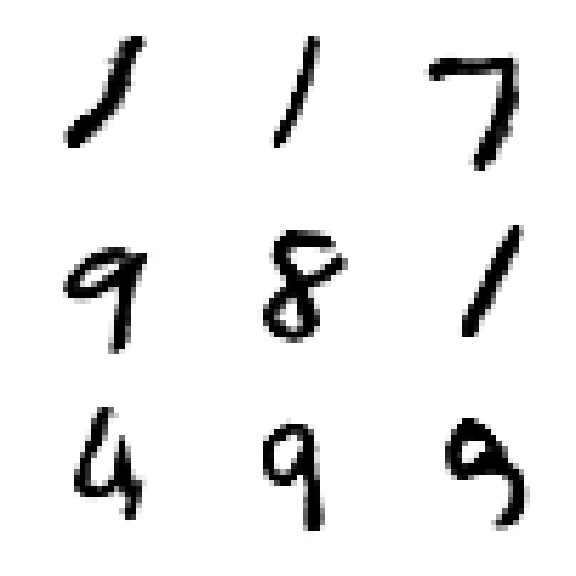 1 1 7
9 8 1
4 9 9